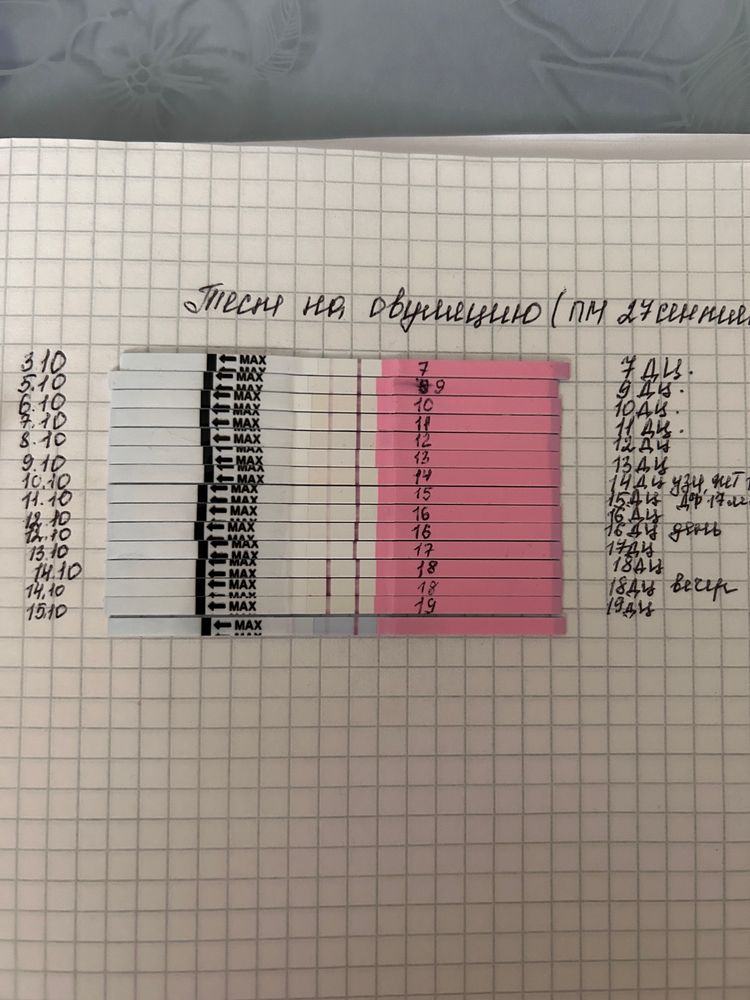 Тест на овуляцию (ПМ 27 сентяб
3.10 ← MAX 7 7 ДЦ.
5.10 ← MAX 9 9 ДЦ.
6.10 ← MAX 10 10 ДЦ.
7.10 ← MAX 11 11 ДЦ.
8.10 ← MAX 12 12 ДЦ
9.10 ← MAX 13 13 ДЦ
10.10 ← MAX 14 14 ДЦ узи,
11.10 ← MAX 15 15 ДЦ ДФ 17
12.10 ← MAX 16 16 ДЦ
12.10 ← MAX 16 16 ДЦ день
13.10 ← MAX 17 17 ДЦ
14.10 ← MAX 18 18 ДЦ
14.10 ← MAX 18 18 ДЦ вечер
15.10 ← MAX 19 19 ДЦ
← MAX